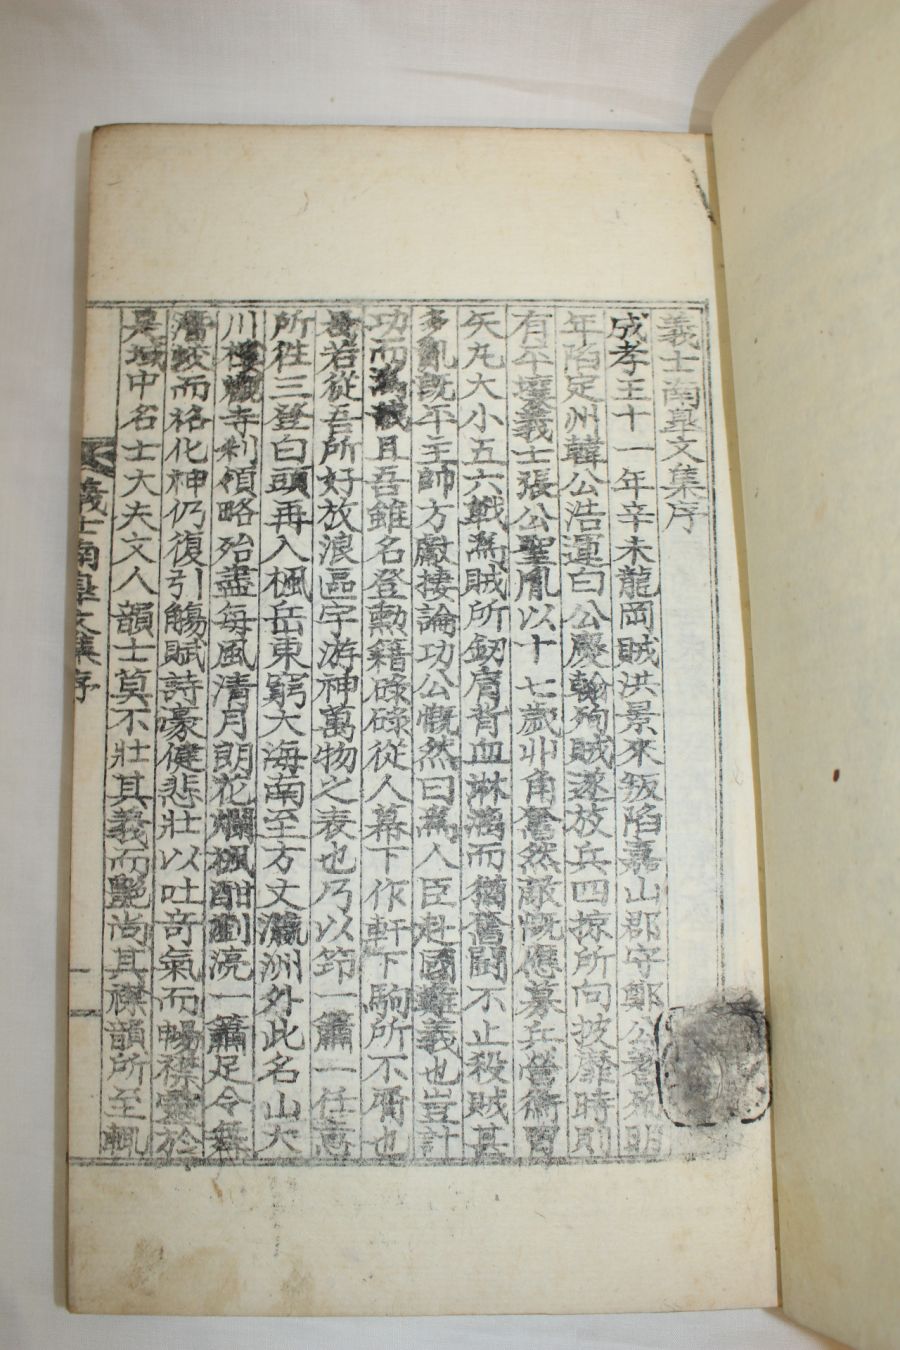 義士南皐文集序
成孝王十一年辛未龍岡賊洪景來叛陷嘉山郡守鄭公蓍殉明
年陷定州韓公浩運白公慶翰殉賊遂放兵四掠所向披靡時則
有平壤義士張公聖胤以十七歲丱角奮然敵慨應募兵營衝冒
矢丸大小五六戰爲賊所劒肩背血淋漓而猶奮鬪不止殺賊甚
多亂旣平主帥方獻捷論功公慨然曰爲人臣赴國難義也豈計
功而爲哉且吾雖名登勳籍碌碌從人幕下作軒下駒所不屑也
若從吾所好放浪區宇游神萬物之表也乃以笻一簫一任意
所徃三登白頭再入楓岳東窮大海南至方丈瀛洲外此名山大
川樓觀寺刹領略殆盡每風清月朗花爛楓酣劉亮一簫足令舞
潛蛟而格化神仍復引觴賦詩豪健悲壯以吐奇氣而暢襟靈於
是域中名士大夫文人韻士莫不壯其義而艶尚其襟韻所至輒
義士南皐文集序
一